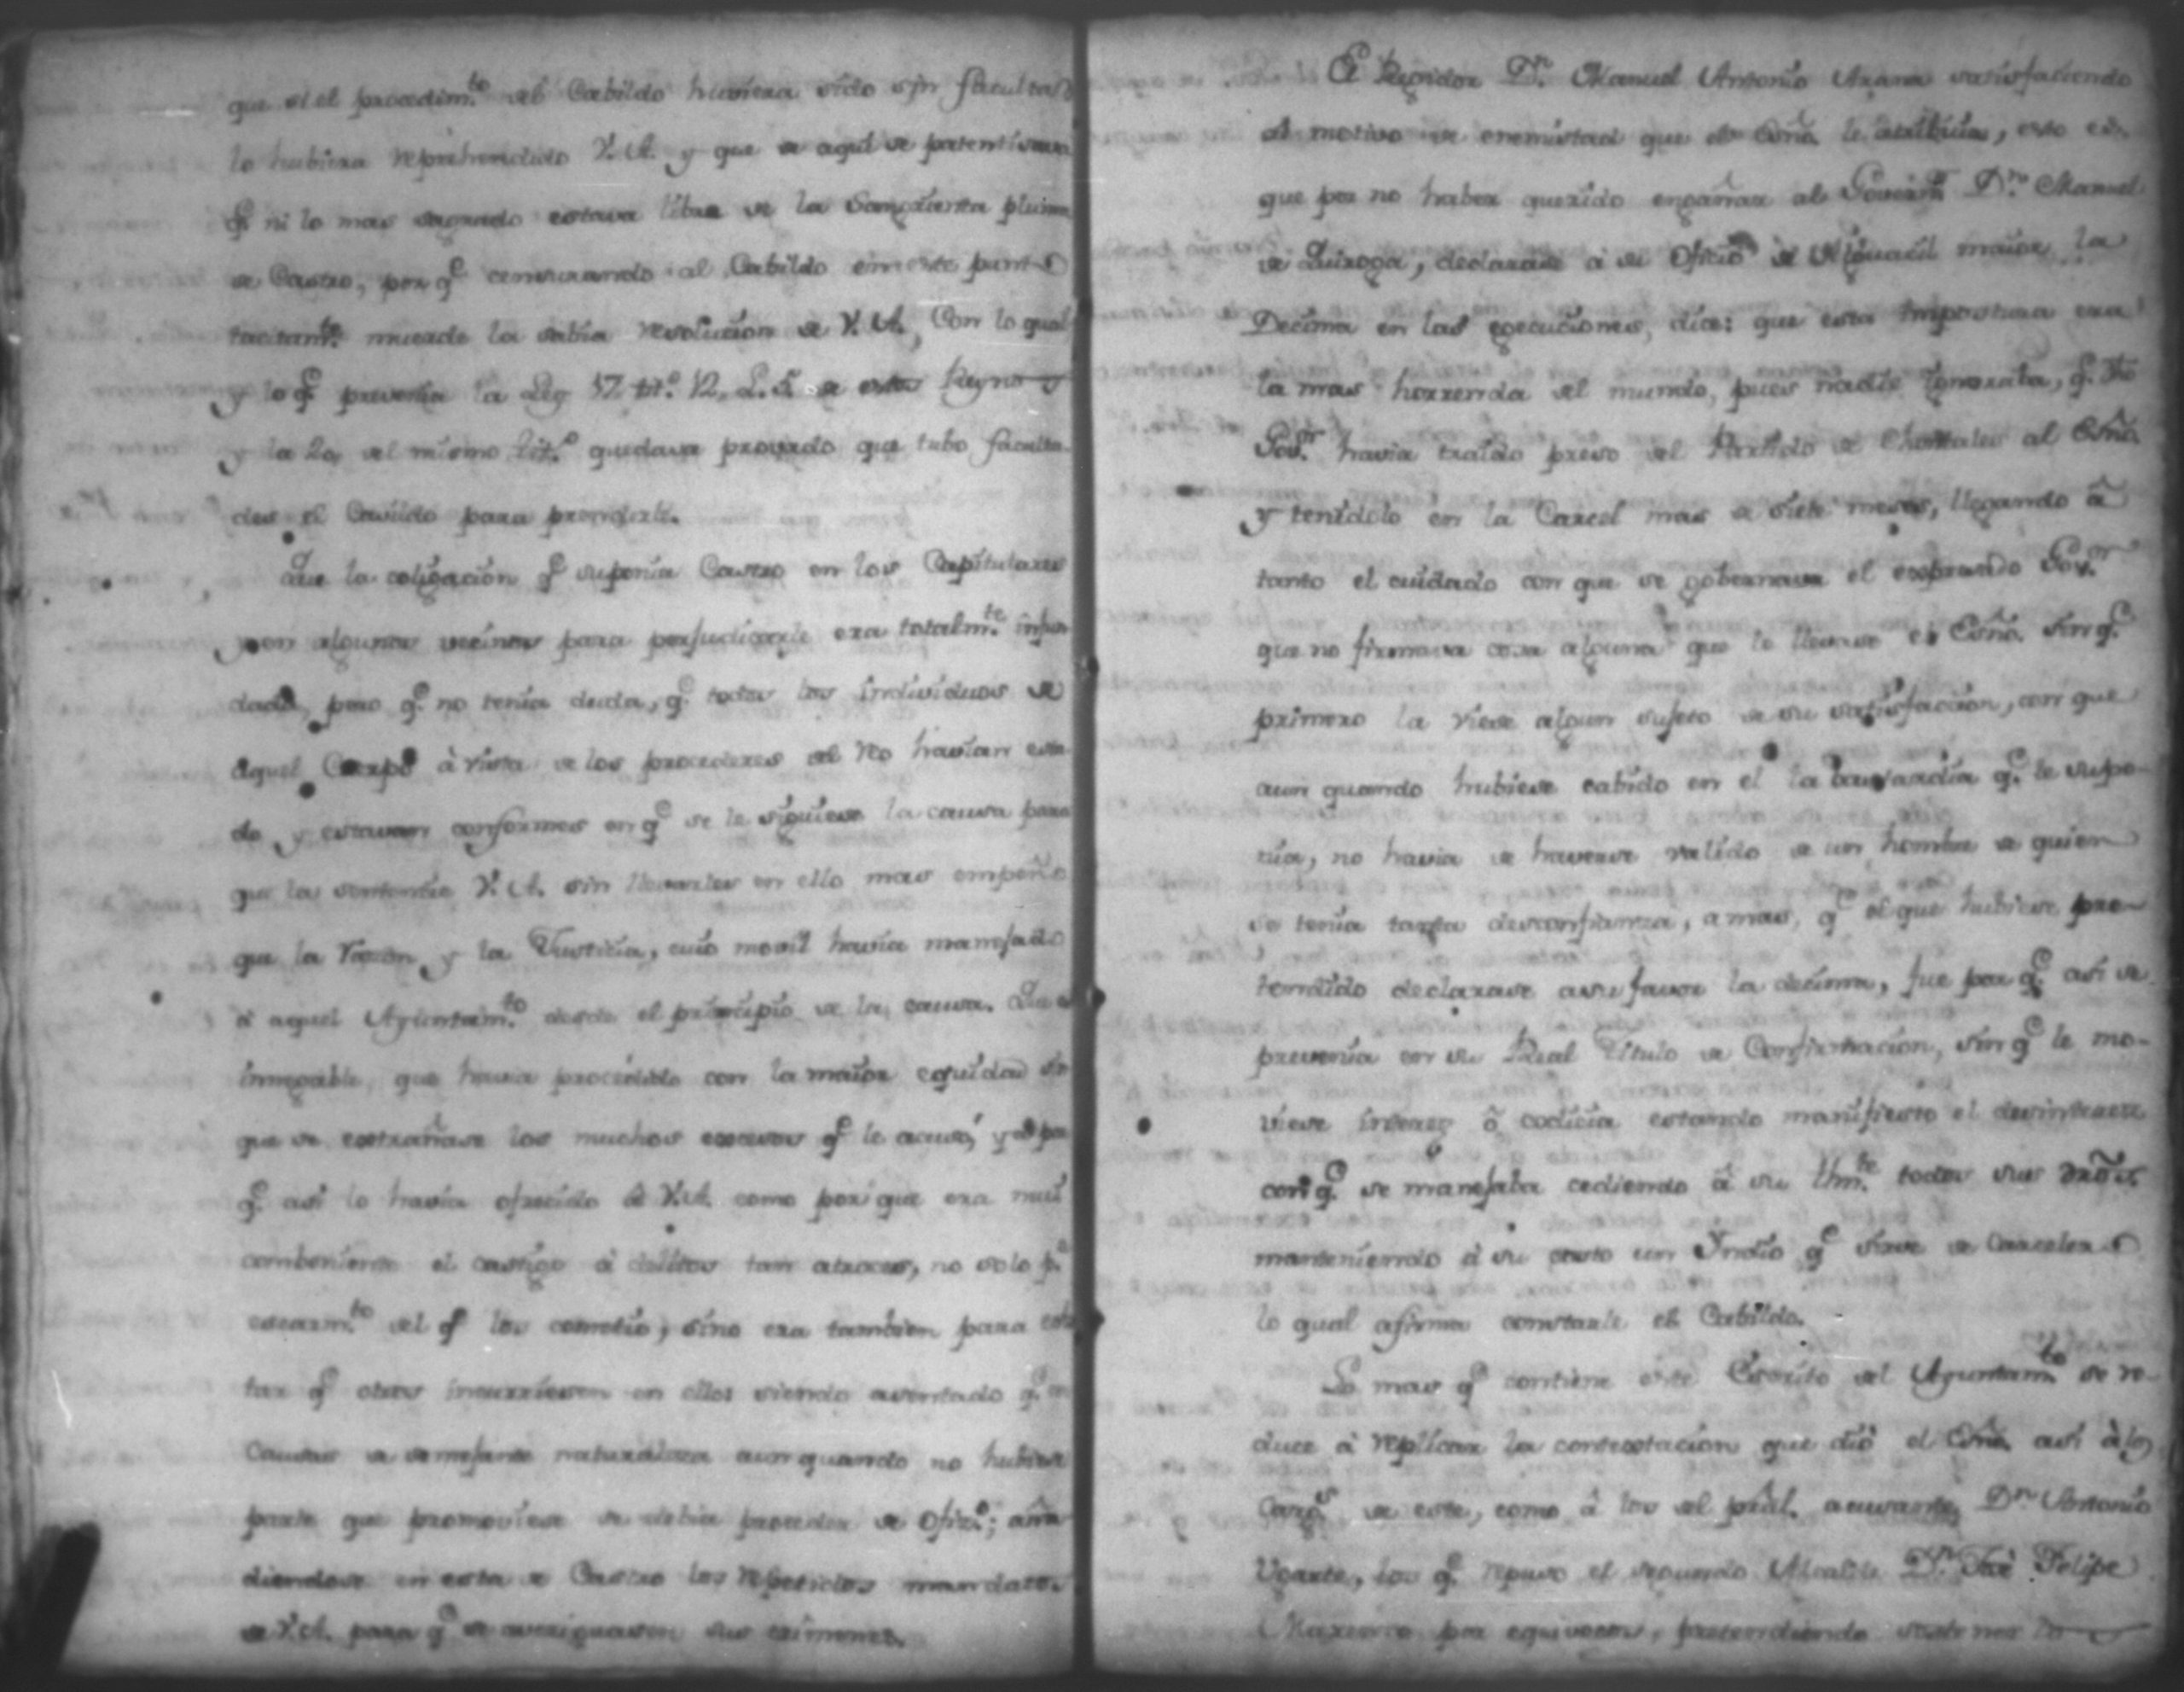 que si el procedim.to del Cabildo huviera sido sin facultad
lo hubiera reprehendido V. A. y que de aqui se patentisava
q.e ni lo mas sagrado estava libre de la Sangrienta pluma
de Castro, por q.e censurando al Cabildo en este punto
tacitam.te muerde la sabia resolucion de V. A. Con lo qual
y lo q.e prevenia la Ley 17 tit.o 12, L. 5. de estos Reynos
y la 20 del mismo tit.o quedava provado que tubo faculta-
des el Cavildo para prenderle.
Que la coligacion q.e suponia Castro en los Capitulares
y en algunos vecinos para perjudicarle era totalm.te infun
dada, pero q.e no tenia duda, q.e todos los individuos de
aquel Cuerpo à vista de los procederes del reo havian esta
do y estavan conformes en q.e se le siguiese la causa para
que la sentencie V. A. sin llevarles en ello mas empeño
que la razon y la Justicia, cuio movil havia manejado
à aquel Ayuntam.to desde el principio de la causa. Que es
innegable que havia procedido con la maior equidad sin
que se extrañase los muchos excesos q.e le acusó, y à por
q.e asi lo havia ofrecido à V. A. como por que era mui
combeniente el castigo à delitos tan atroces, no solo p.a
escarm.to del q.e los cometio, sino era tambien para evi
tar q.e otros incurriesen en ellos siendo asentado q.e en
Causas de semejante naturaleza aun quando no hubiese
parte que promoviese se debia proceder de Ofiz.o; aña
diendose en esta de Castro los repetidos mandatos
de V. A. para q.e se averiguasen sus crimenes.
El Regidor D.n Manuel Antonio Arana satisfaciendo
al motivo de enemistad que el Esño. le atribuia, esto es
que por no haber querido engañar al Governr. D.n Manuel
de Quiroga, declarase à su Oficio de Alguacil maior la
Decima en las egecuciones, dice: que esta impostura era
la mas horrenda del mundo, pues nadie ignoraba, q.e dho
Gov.or havia traido preso del Partido de Chontales al Esño.
y tenidolo en la Carcel mas de siete meses, llegando à
tanto el cuidado con que se gobernava el expresado Gov.or
que no firmava cosa alguna que le llevase el Esño. sin q.e
primero la viese algun sujeto de su satisfaccion, con que
aun quando hubiese cabido en el la q.e le supo-
nia, no havia de haverse valido de un hombre de quien
se tenia tanta desconfianza, a mas, q.e el que hubiese pre-
tendido declarase a su favor la decima, fue por q.e asi se
prevenia en su Real Titulo de Confirmacion, sin q.e le mo-
viese interes ô codicia estando manifiesto el desinteres
con q.e se manejaba cediendo à su then.te todos sus dros.
manteniendo à su costo un Yndio q.e sirve de Carcelero
lo qual afirma constarle el Cabildo.
Lo mas q.e contiene este Escrito del Ayuntam.to se re-
duce à replicar la contestacion que dió el Esño. asi à los
Carg.s de este, como à los del pral. acusante D.n Antonio
Ugarte, los q.e repuso el segundo Alcalde D.n José Felipe
por equivocos, pretendiendo sostener lo